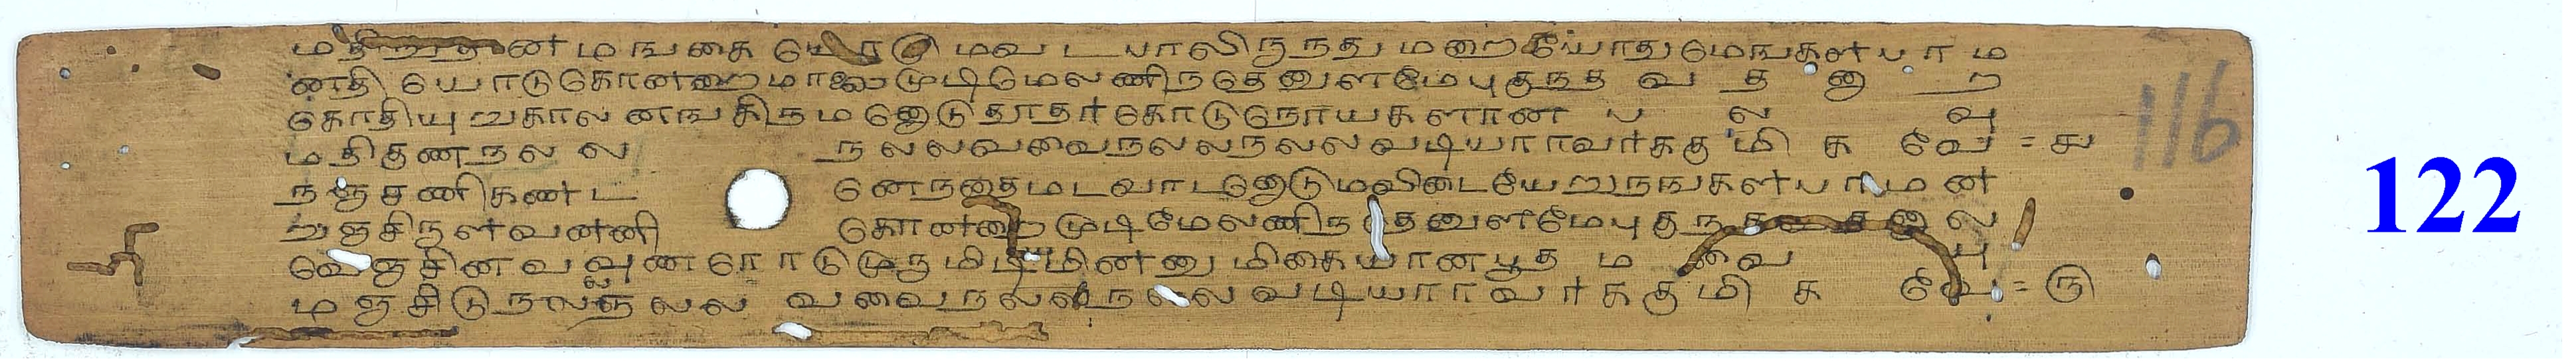 மதிநுதன மஙகை யோடு மவ டபாலிருநது மறையோதுமெஙகள பரம
னதி யொடுகொனறைமாலைமுடிமெலணிநதெனுளமெபுகுநத வ த னா ற
கொதியுறுகாலனஙகிநமனொடுதூதரகொடுநொயகளான ப ல வு
மதிகுணநல ல நலலவவைநலலநலலவடியாரவரககுமி க வெ = ௪
நஞசணிகணட னெநதைமடவாடனொடுமவிடையெறுநஙகளபரமன
றுஞசிருளவனனி கொனறைமுடிமெலணிநதெனுளமெபுகுநதவதனால
வெஞசினவவுணரொடுமுருமிடியுமினனுமிகையானபூதமவையு
மஞசிடுநலலநலல வவைநலலநலலவடியாரவரககுமி க வெ = ௫
116
122